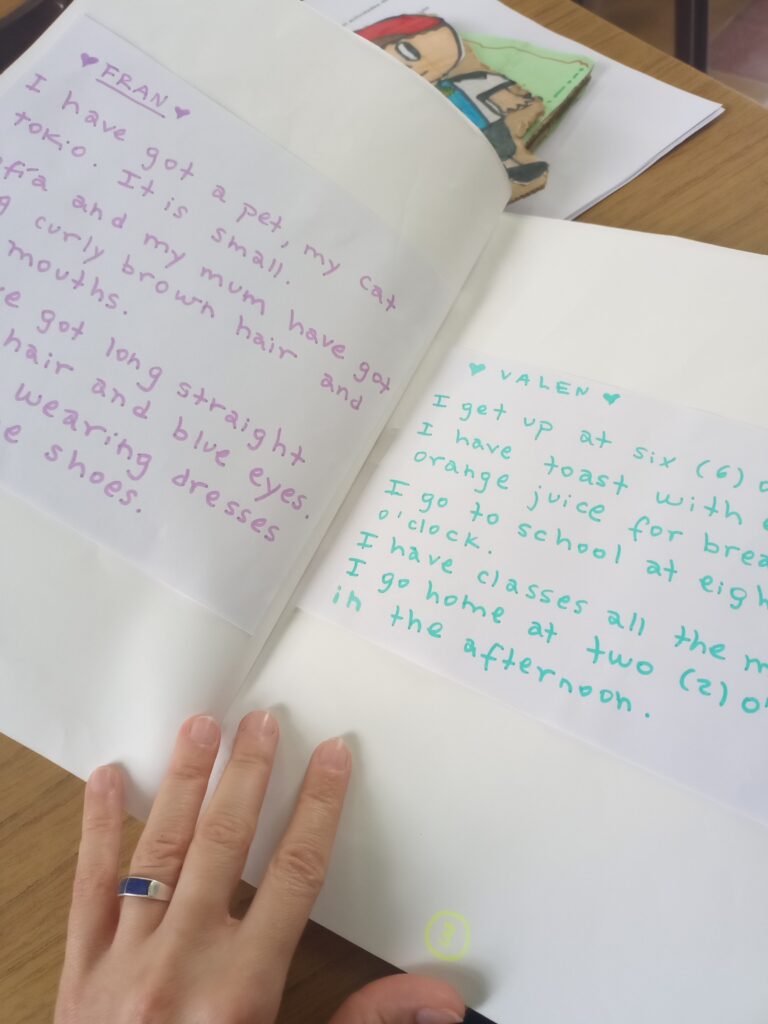 ♥ FRAN ♥
I have got a pet, my cat
tokio. It is small.
and my mum have got
curly brown hair and
mouths.
got long straight
hair and blue eyes.
wearing dresses
shoes.
♥ VALEN ♥
I get up at six (6)
I have toast with
orange juice for
I go to school at
o'clock.
I have classes all the
I go home at two (2)
in the afternoon.
3